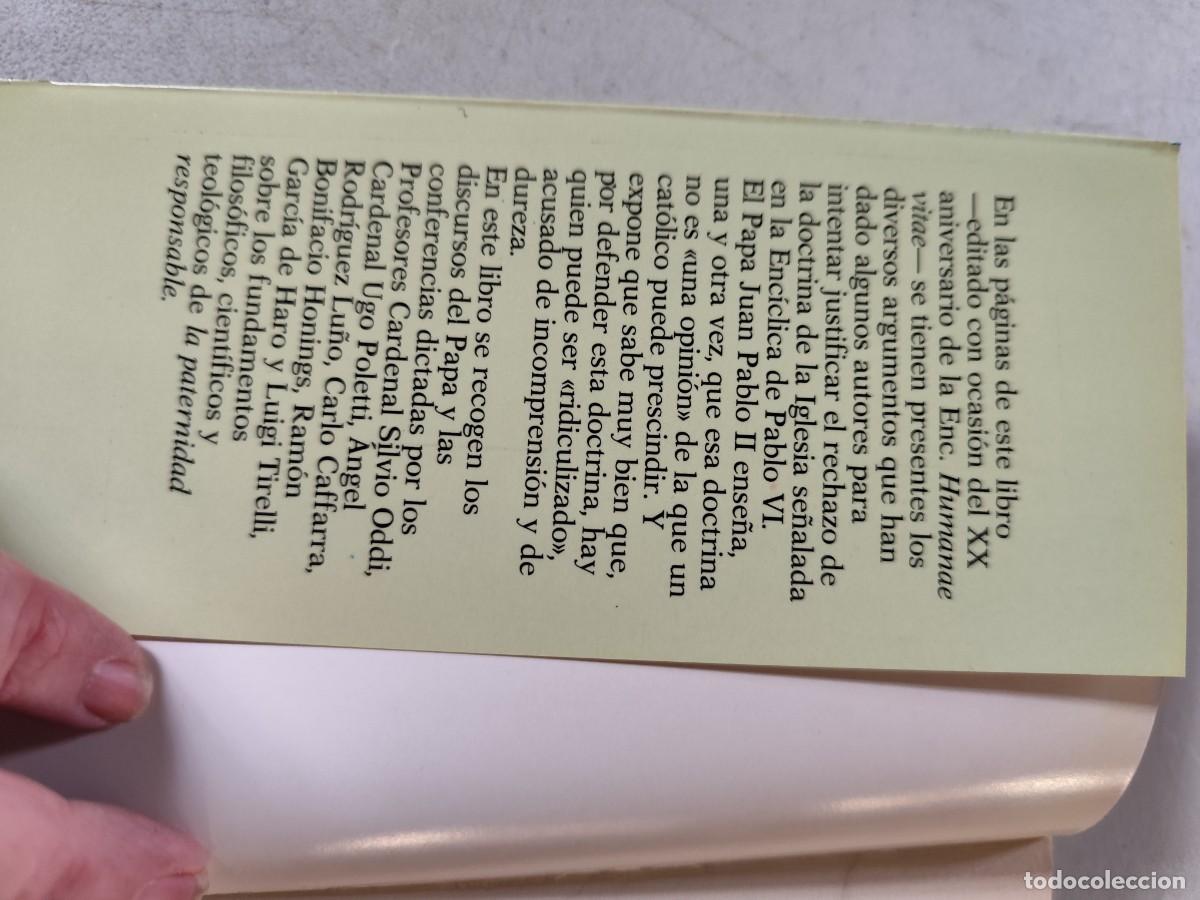 En las páginas de este libro
—editado con ocasión del XX
aniversario de la Enc. Humanae
vitae— se tienen presentes los
diversos argumentos que han
dado algunos autores para
intentar justificar el rechazo de
la doctrina de la Iglesia señalada
en la Encíclica de Pablo VI.
El Papa Juan Pablo II enseña,
una y otra vez, que esa doctrina
no es «una opinión» de la que un
católico puede prescindir. Y
expone que sabe muy bien que,
por defender esta doctrina, hay
quien puede ser «ridiculizado»,
acusado de incomprensión y de
dureza.
En este libro se recogen los
discursos del Papa y las
conferencias dictadas por los
Profesores Cardenal Silvio Oddi,
Cardenal Ugo Poletti, Ángel
Rodríguez Luño, Carlo Caffarra,
Bonifacio Honings, Ramón
García de Haro y Luigi Tirelli,
sobre los fundamentos
filosóficos, científicos y
teológicos de la paternidad
responsable.
todocoleccion